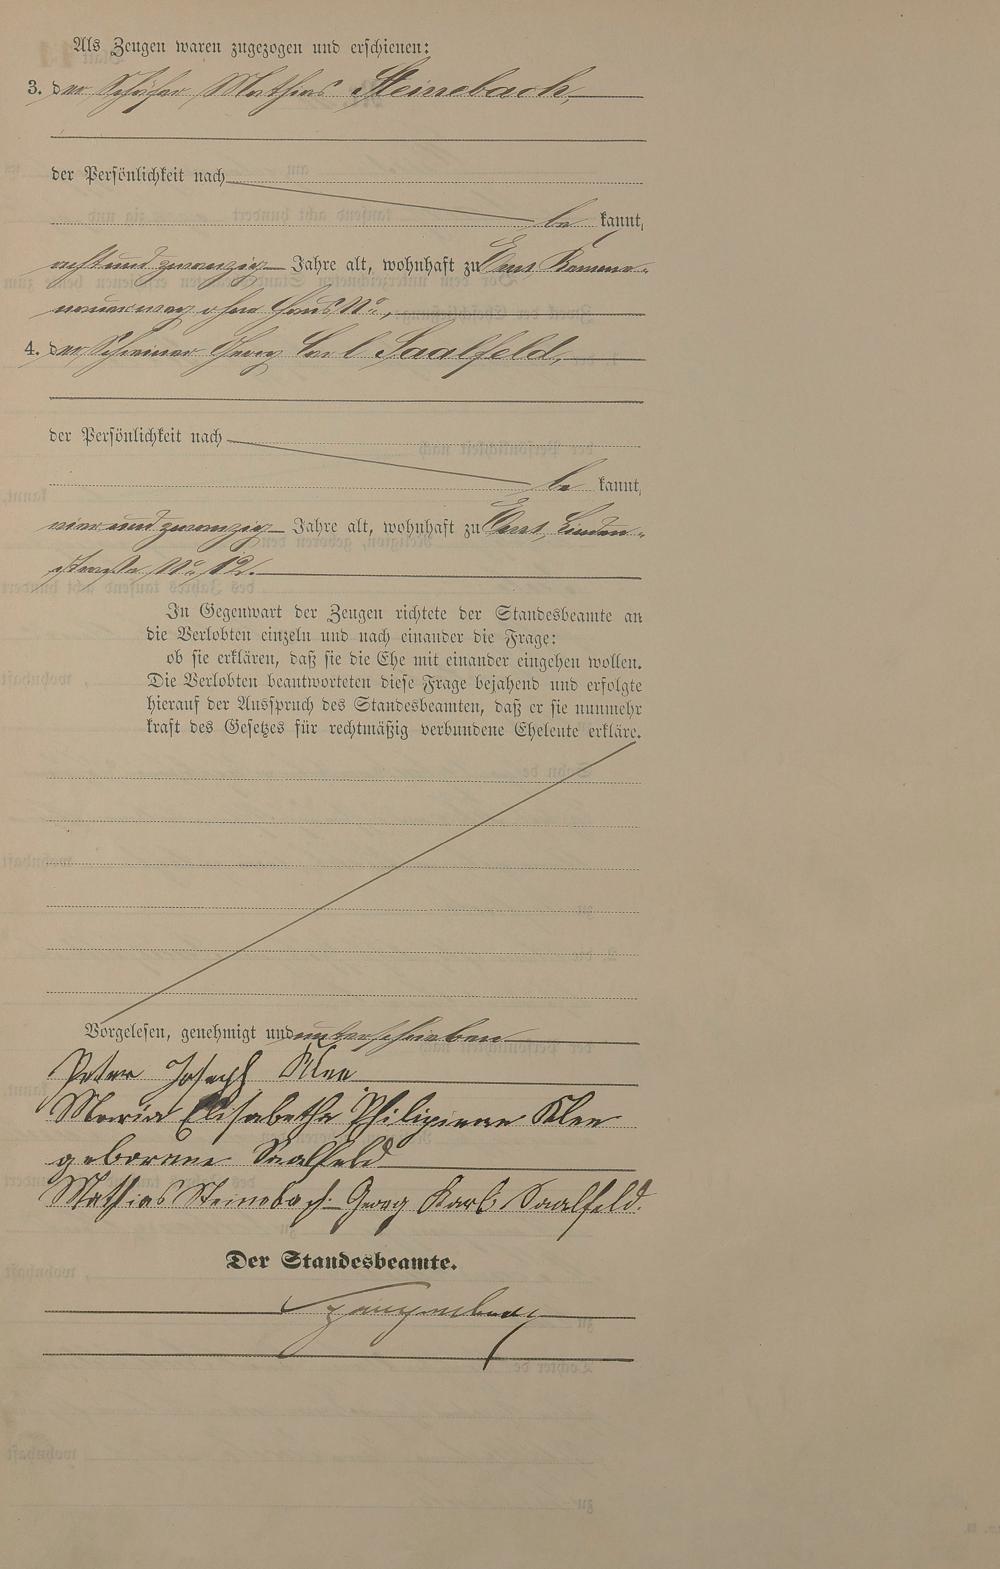 Als Zeugen waren zugezogen und erschienen:
3. der Schäfer Mathias Steinebach,
der Persönlichkeit nach
be kannt,
acht und zwanzig Jahre alt, wohnhaft zu Ems
ohne Haus No,
4. der Schreiner Georg Carl Saalfeld,
der Persönlichkeit nach
be kannt,
vier und zwanzig Jahre alt, wohnhaft zu Ems, Linden-
straße No 12.
In Gegenwart der Zeugen richtete der Standesbeamte an
die Verlobten einzeln und nach einander die Frage:
ob sie erklären, daß sie die Ehe mit einander eingehen wollen.
Die Verlobten beantworteten diese Frage bejahend und erfolgte
hierauf der Ausspruch des Standesbeamten, daß er sie nunmehr
kraft des Gesetzes für rechtmäßig verbundene Eheleute erkläre.
Vorgelesen, genehmigt und unterschrieben
Peter Joseph Klee
Maria Elisabetha Philipinne Klee
geborene Saalfeld
Mathias Steinebach. Georg Karl Saalfeld.
Der Standesbeamte.